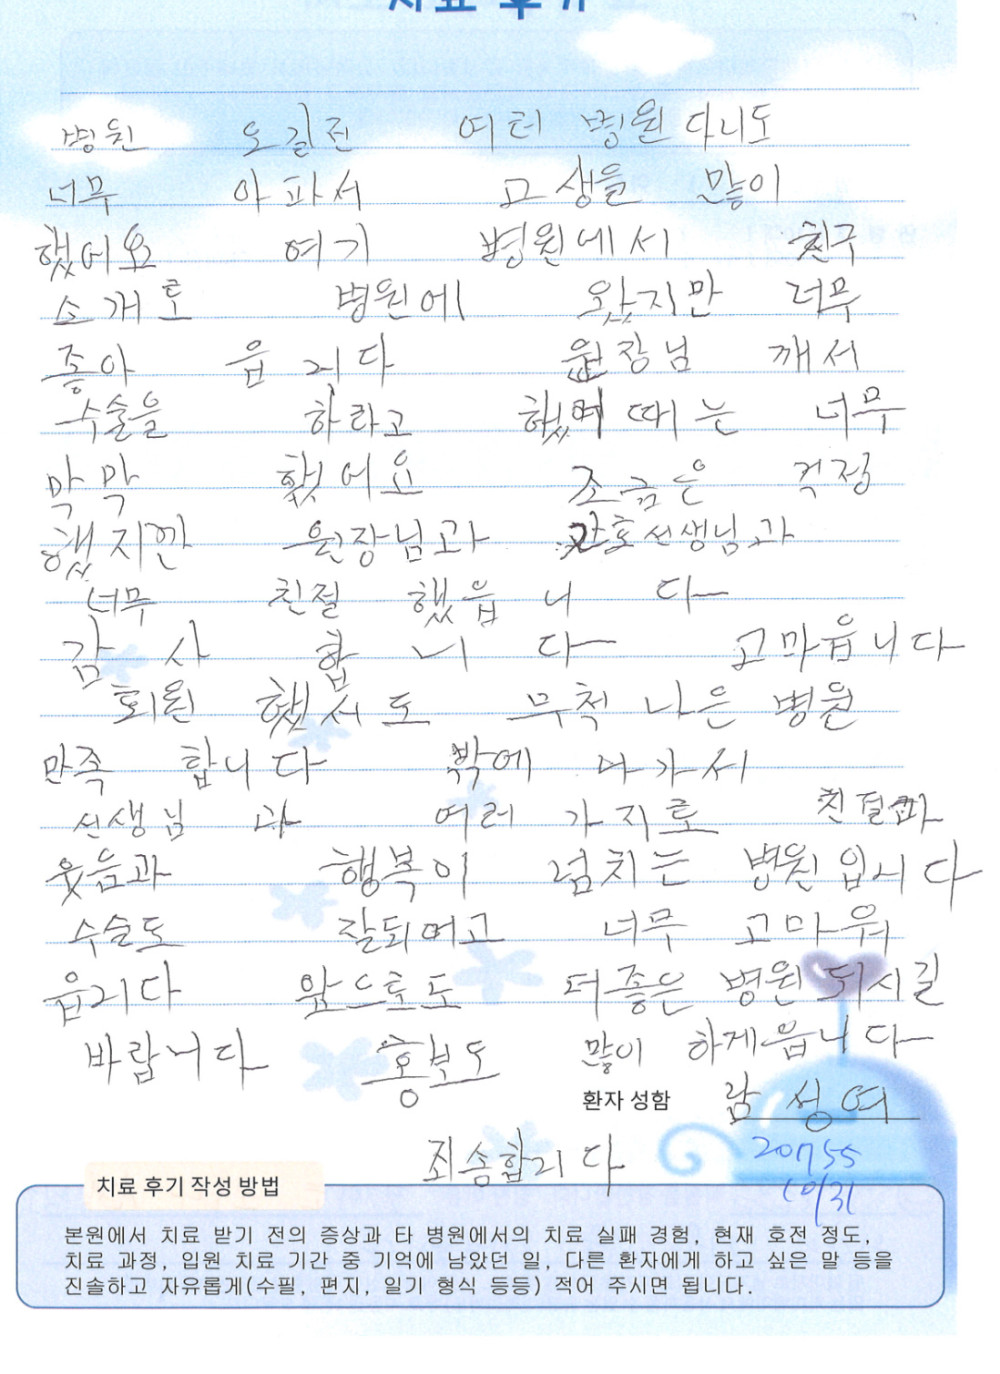 치료 후기
병원 오길전 여러 병원 다니도
너무 아파서 고생을 많이
했어요 여기 병원에서 친구
소개로 병원에 왔지만 너무
좋아 읍니다 원장님 깨서
수술을 하라고 했며 때는 너무
막막 했어요 조금은 걱정
했지만 원장님과 간호선생님과
너무 친절 했읍니다
감사 합니다 고마읍니다
회원 했서도 무척 나은 병원
만족 합니다 밖에 나가서
선생님 과 여러 가지로 친절과
웃음과 행복이 넘치는 병원 입니다
수술도 잘되여고 너무 고마워
읍니다 앞으로도 더좋은 병원 되시길
바랍니다 홍보도 많이 하게읍니다
환자 성함 성여
죄송합니다
10/31
치료 후기 작성 방법
본원에서 치료 받기 전의 증상과 타 병원에서의 치료 실패 경험, 현재 호전 정도,
치료 과정, 입원 치료 기간 중 기억에 남았던 일, 다른 환자에게 하고 싶은 말 등을
진솔하고 자유롭게(수필, 편지, 일기 형식 등등) 적어 주시면 됩니다.